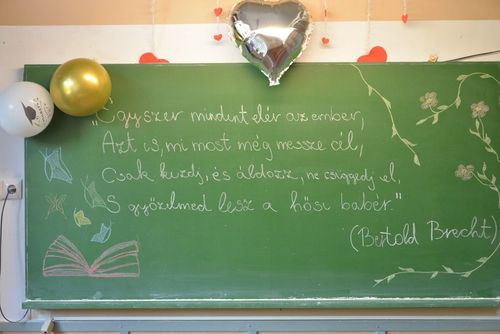 „Egyszer mindent elér az ember,
Azt is, mi most még messze cél,
Csak küzdj, és áldozz, ne csüggedj el,
S győzelmed lesz a hősi babér."
(Bertold Brecht)